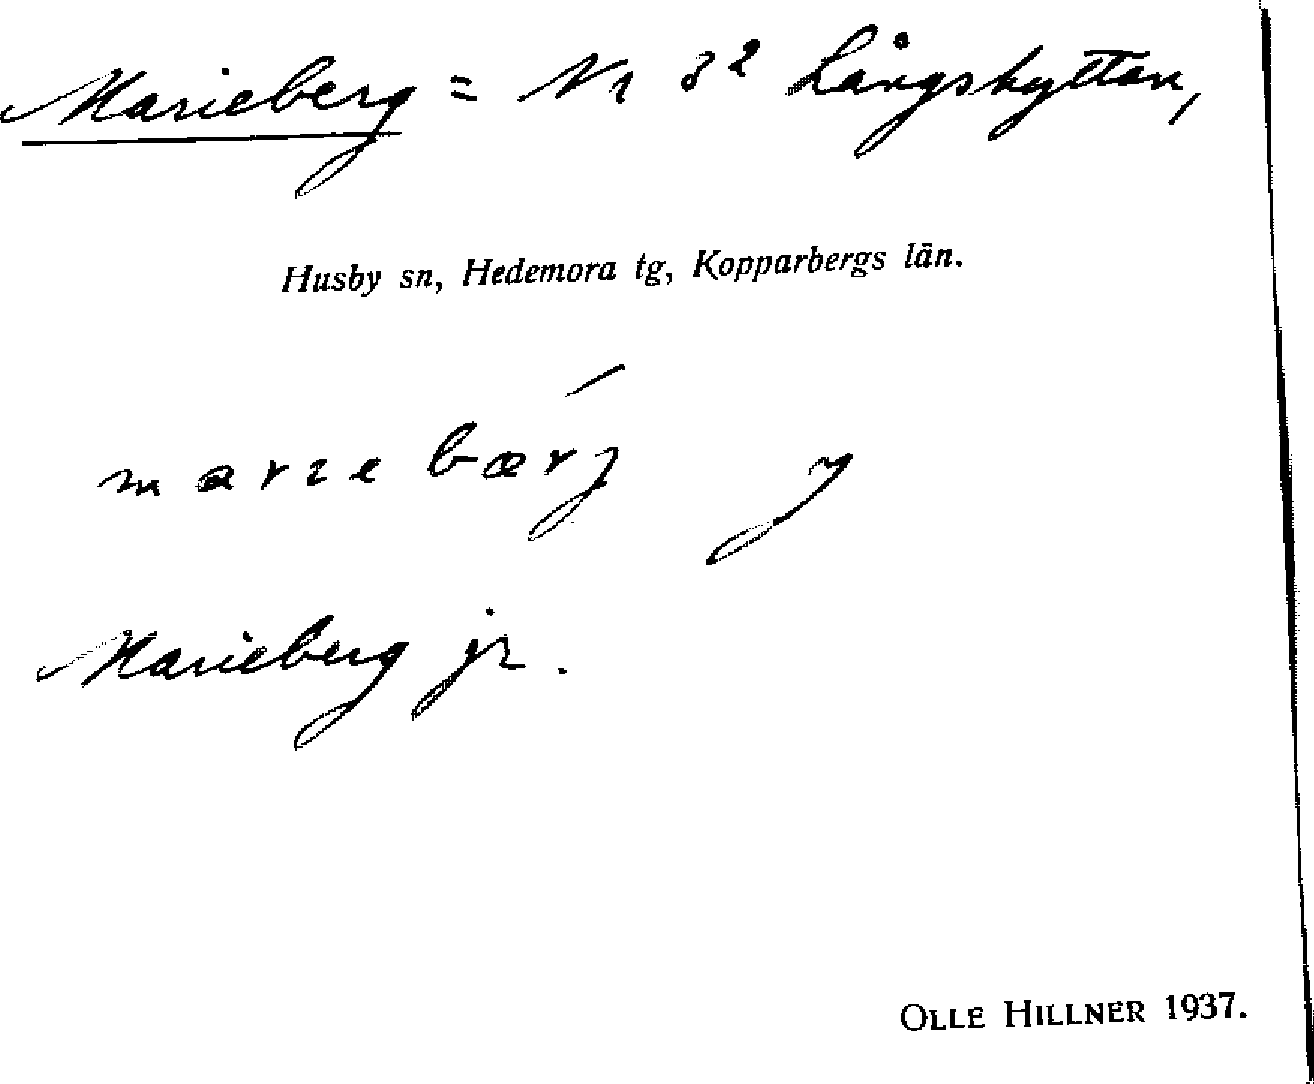 Marieberg = Nr 32 Långshyttan,
Husby sn, Hedemora tg, Kopparbergs län.
marıebærj y
Marieberg jr.
OLLE HILLNER 1937.